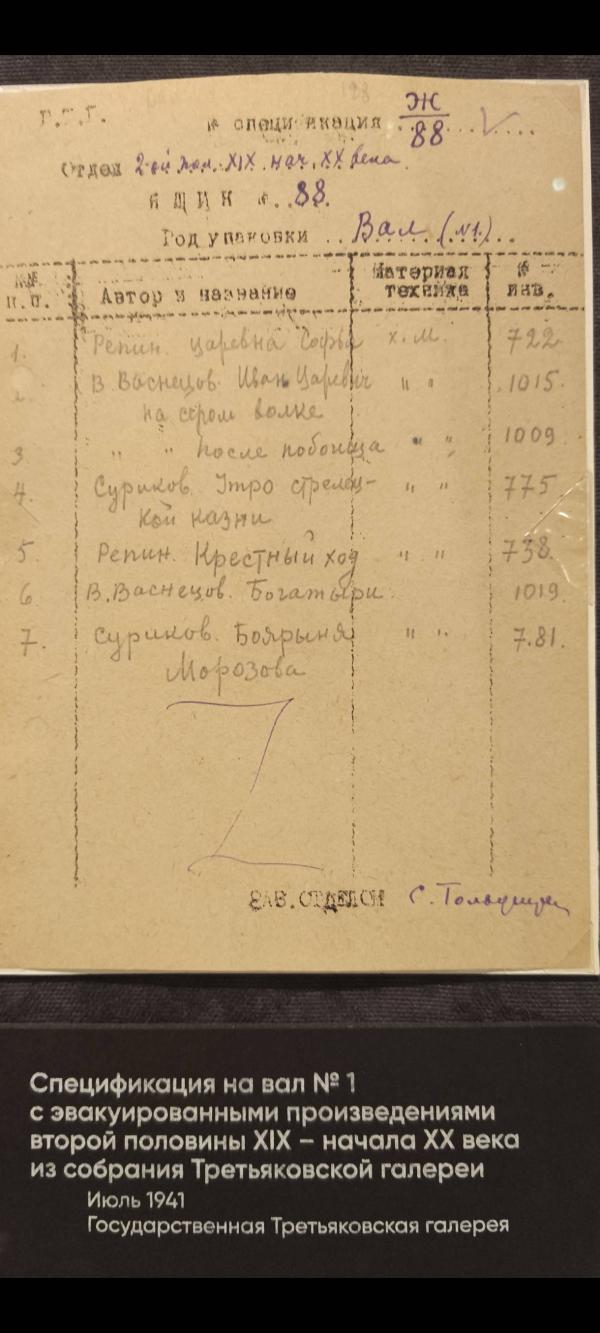 Г.Т.Г.
№ спецификация Ж/88
Отдел 2-ой пол. XIX нач. XX века.
ЯЩИК №..88.
Род упаковки ..Вал (№1.)..
№№ п.п. Автор и название Материал техника № инв.
1. Репин. Царевна Софья х.м. 722
2. В. Васнецов. Иван Царевич " " 1015.
на сером волке
3 " " После побоища " " 1009
4. Суриков. Утро стрелец- " " 775
кой казни
5. Репин. Крестный ход " " 738.
6 В. Васнецов. Богатыри. 1019.
7. Суриков. Боярыня " " 781.
Морозова
ЗАВ. ОТДЕЛОМ С.
Спецификация на вал № 1
с эвакуированными произведениями
второй половины XIX – начала XX века
из собрания Третьяковской галереи
Июль 1941
Государственная Третьяковская галерея